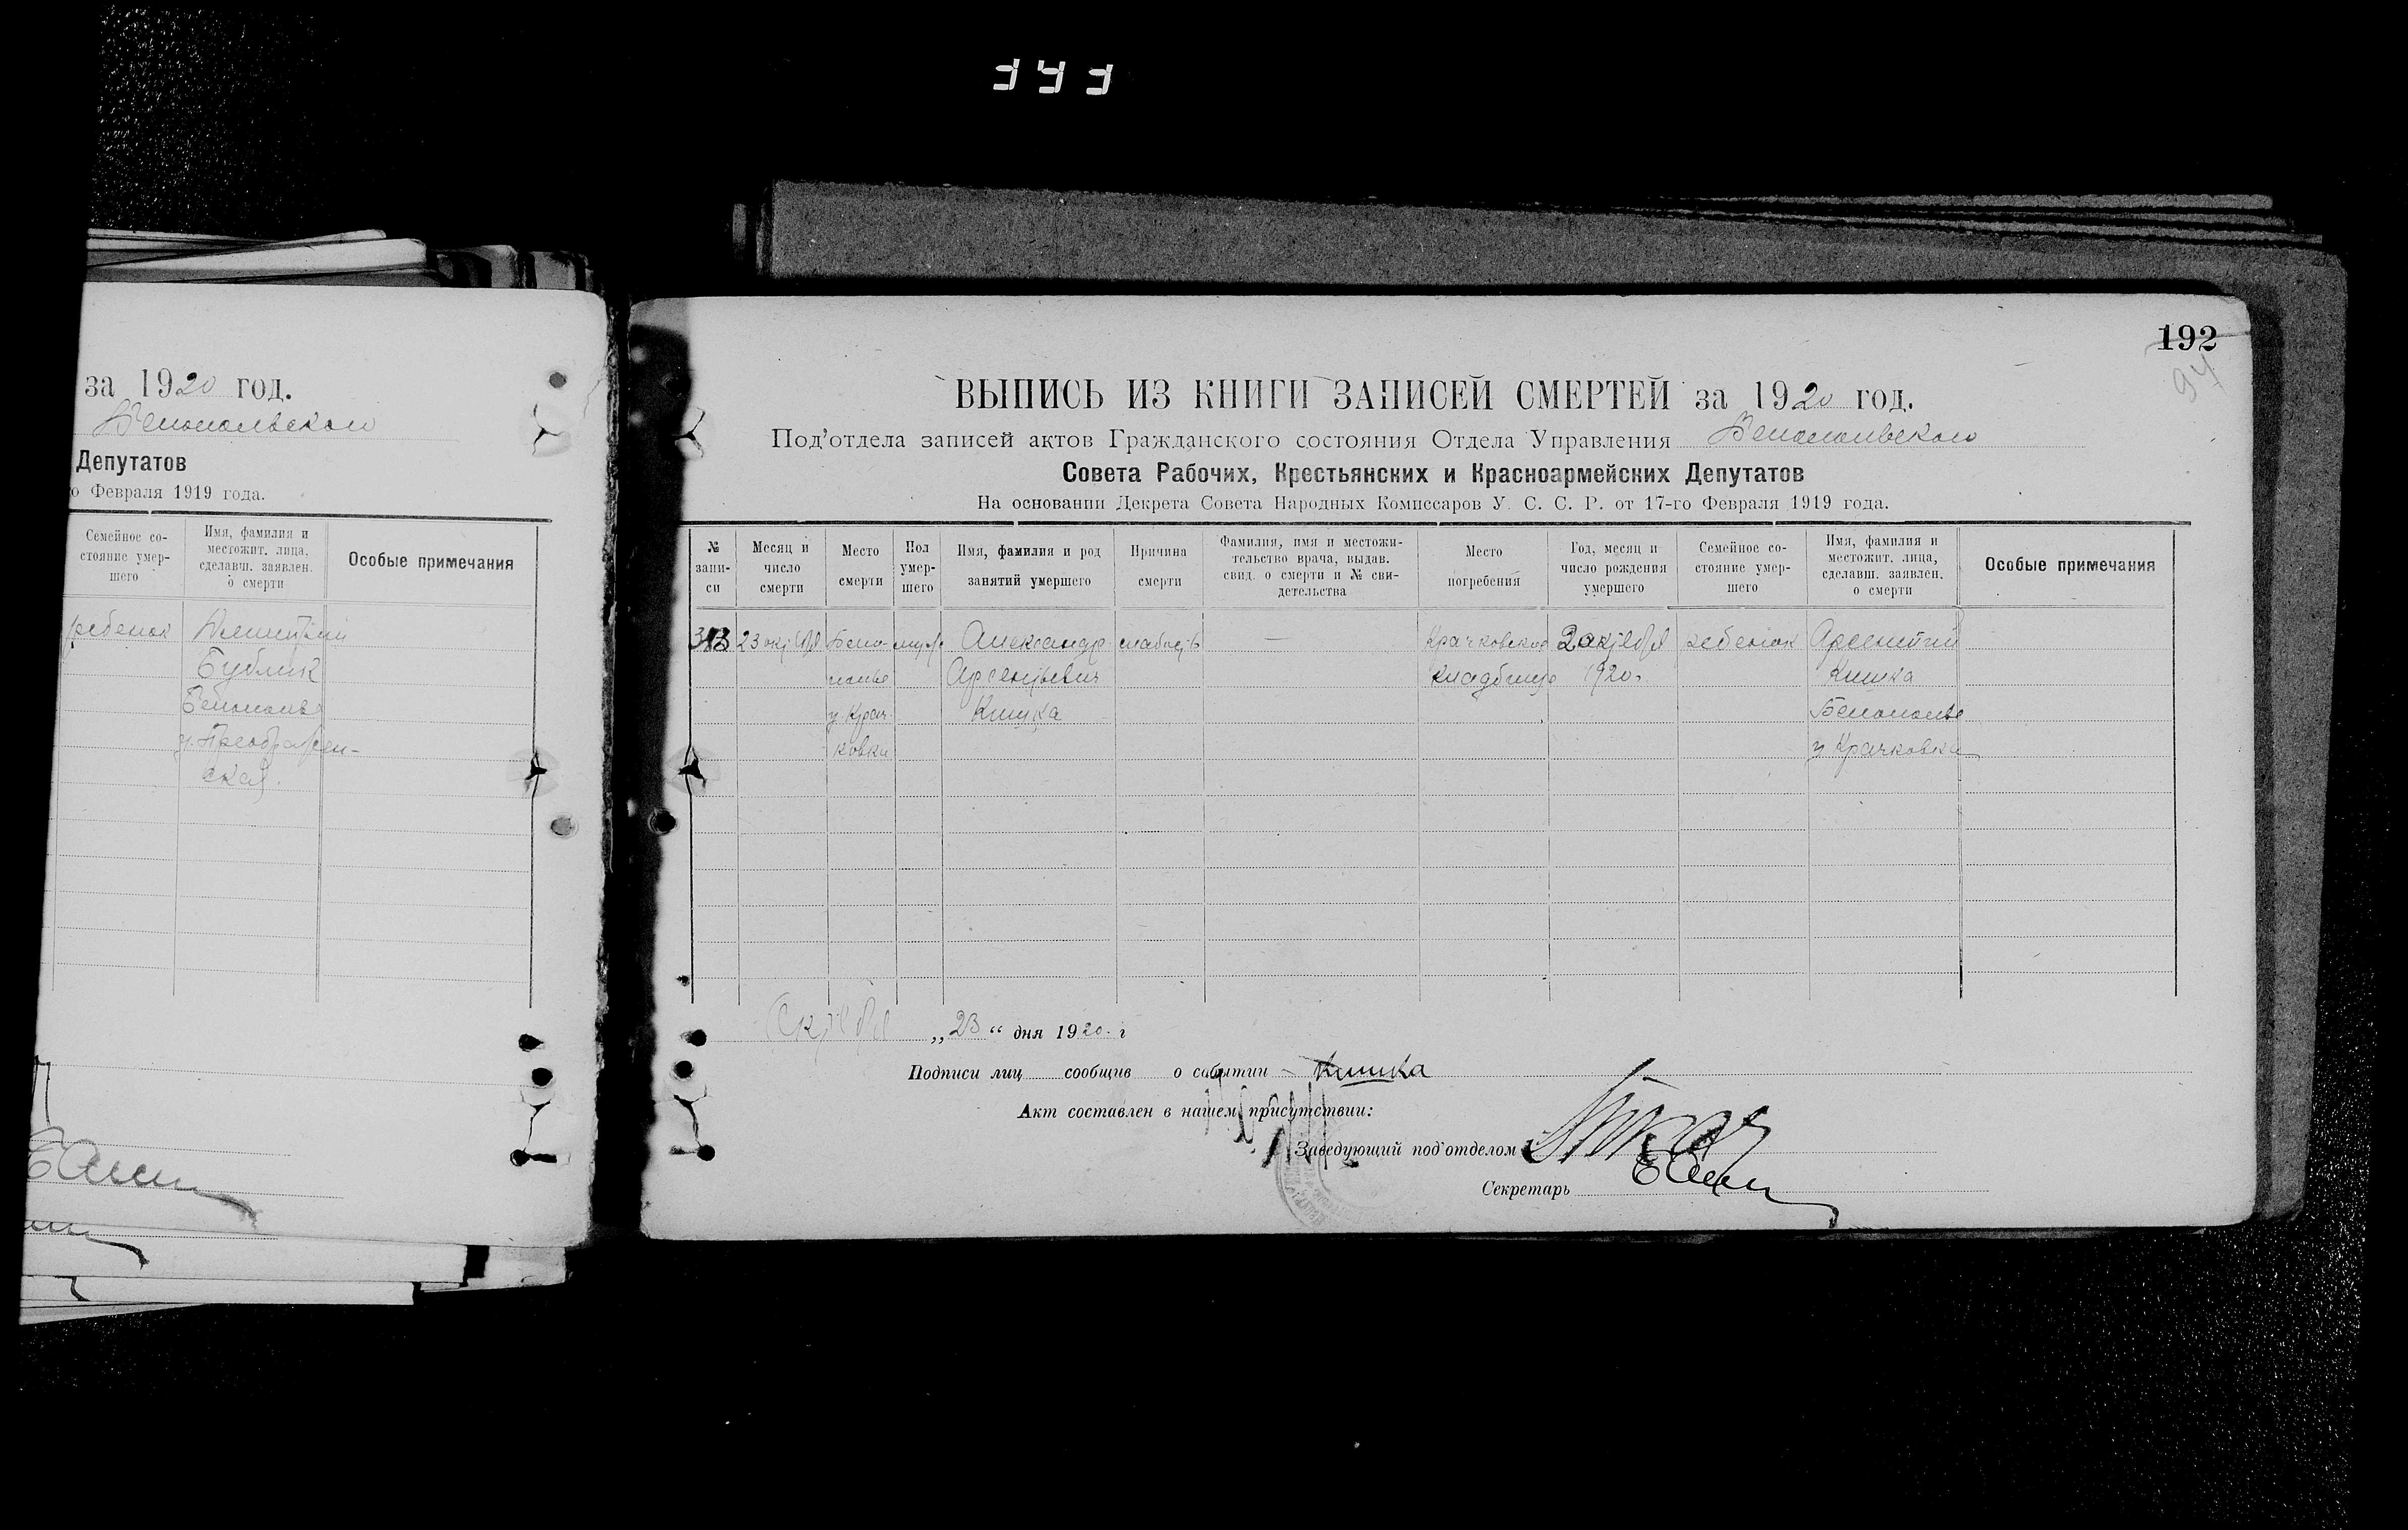 343
за 1920 год.
Белопольского
Депутатов
о Февраля 1919 года.
Семейное со-
стояние умер-
шего
Имя, фамилия и
местожит. лица,
сделавш. заявлен.
о смерти
Особые примечания
ребенок
Дмитрий
Бублик
Белополье
у. Преображен-
ская.
192
94
ВЫПИСЬ ИЗ КНИГИ ЗАПИСЕЙ СМЕРТЕЙ за 1920 год.
Под'отдела записей актов Гражданского состояния Отдела Управления Белопольского
Совета Рабочих, Крестьянских и Красноармейских Депутатов
На основании Декрета Совета Народных Комиссаров У. С. С. Р. от 17-го Февраля 1919 года.
№
запи-
си
Месяц и
число
смерти
Место
смерти
Пол
умер-
шего
Имя, фамилия и род
занятий умершего
Причина
смерти
Фамилия, имя и местожи-
тельство врача, выдав.
свид. о смерти и № сви-
детельства
Место
погребения
Год, месяц и
число рождения
умершего
Семейное со-
стояние умер-
шего
Имя, фамилия и
местожит. лица,
сделавш. заявлен.
о смерти
Особые примечания
23 октября
Бело-
полье
у Крач
ковка
муж
Александр
Арсентьевич
Кишка
слабость
—
Крачковское
кладбище
2 октября
1920.
ребенок
Арсентий
Кишка
Белополье
у Крачковка
Октября „23“ дня 1920. г
Подписи лиц сообщив о событии - Кишка
Акт составлен в нашем присутствии:
Заведующий под'отделом
Секретарь